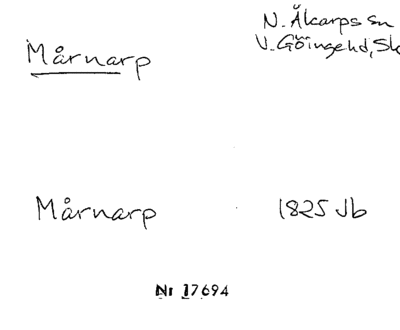 N. Åkarps sn
Mårnarp
V. Göingehd, Sk
Mårnarp
1825 Jb
Nr 17694